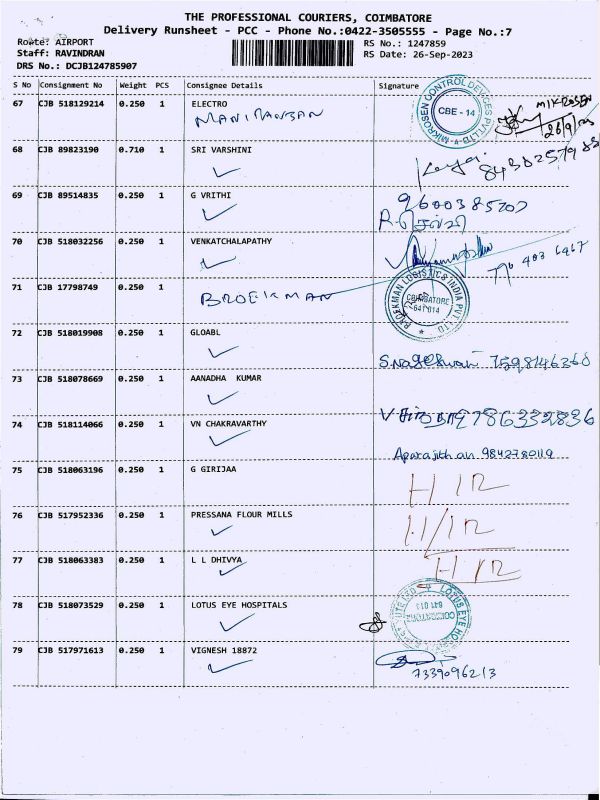 THE PROFESSIONAL COURIERS, COIMBATORE
Delivery Runsheet - PCC - Phone No.:0422-3505555 - Page No.:7
Route: AIRPORT RS No.: 1247859
Staff: RAVINDRAN RS Date: 26-Sep-2023
DRS No.: DCJB124785907
S No Consignment No Weight PCS Consignee Details Signature
67 CJB 518129214 0.250 1 ELECTRO
MIKROSEN CONTROL DEVICES PVT LTD
CBE - 14
MIKROSEN
68 CJB 89823190 0.710 1 SRI VARSHINI
69 CJB 89514835 0.250 1 G VRITHI
70 CJB 518032256 0.250 1 VENKATCHALAPATHY
71 CJB 17798749 0.250 1
BROEKMAN
BROEKMAN LOGISTICS INDIA PVT. LTD
COIMBATORE
641 014
72 CJB 518019908 0.250 1 GLOABL
S.nageshwari 7598146360
73 CJB 518078669 0.250 1 AANADHA KUMAR
9786332836
74 CJB 518114066 0.250 1 VN CHAKRAVARTHY
Aparajithan. 9842780119
75 CJB 518063196 0.250 1 G GIRIJAA
76 CJB 517952336 0.250 1 PRESSANA FLOUR MILLS
77 CJB 518063383 0.250 1 L L DHIVYA
78 CJB 518073529 0.250 1 LOTUS EYE HOSPITALS
LOTUS EYE
79 CJB 517971613 0.250 1 VIGNESH 18872
7339096213